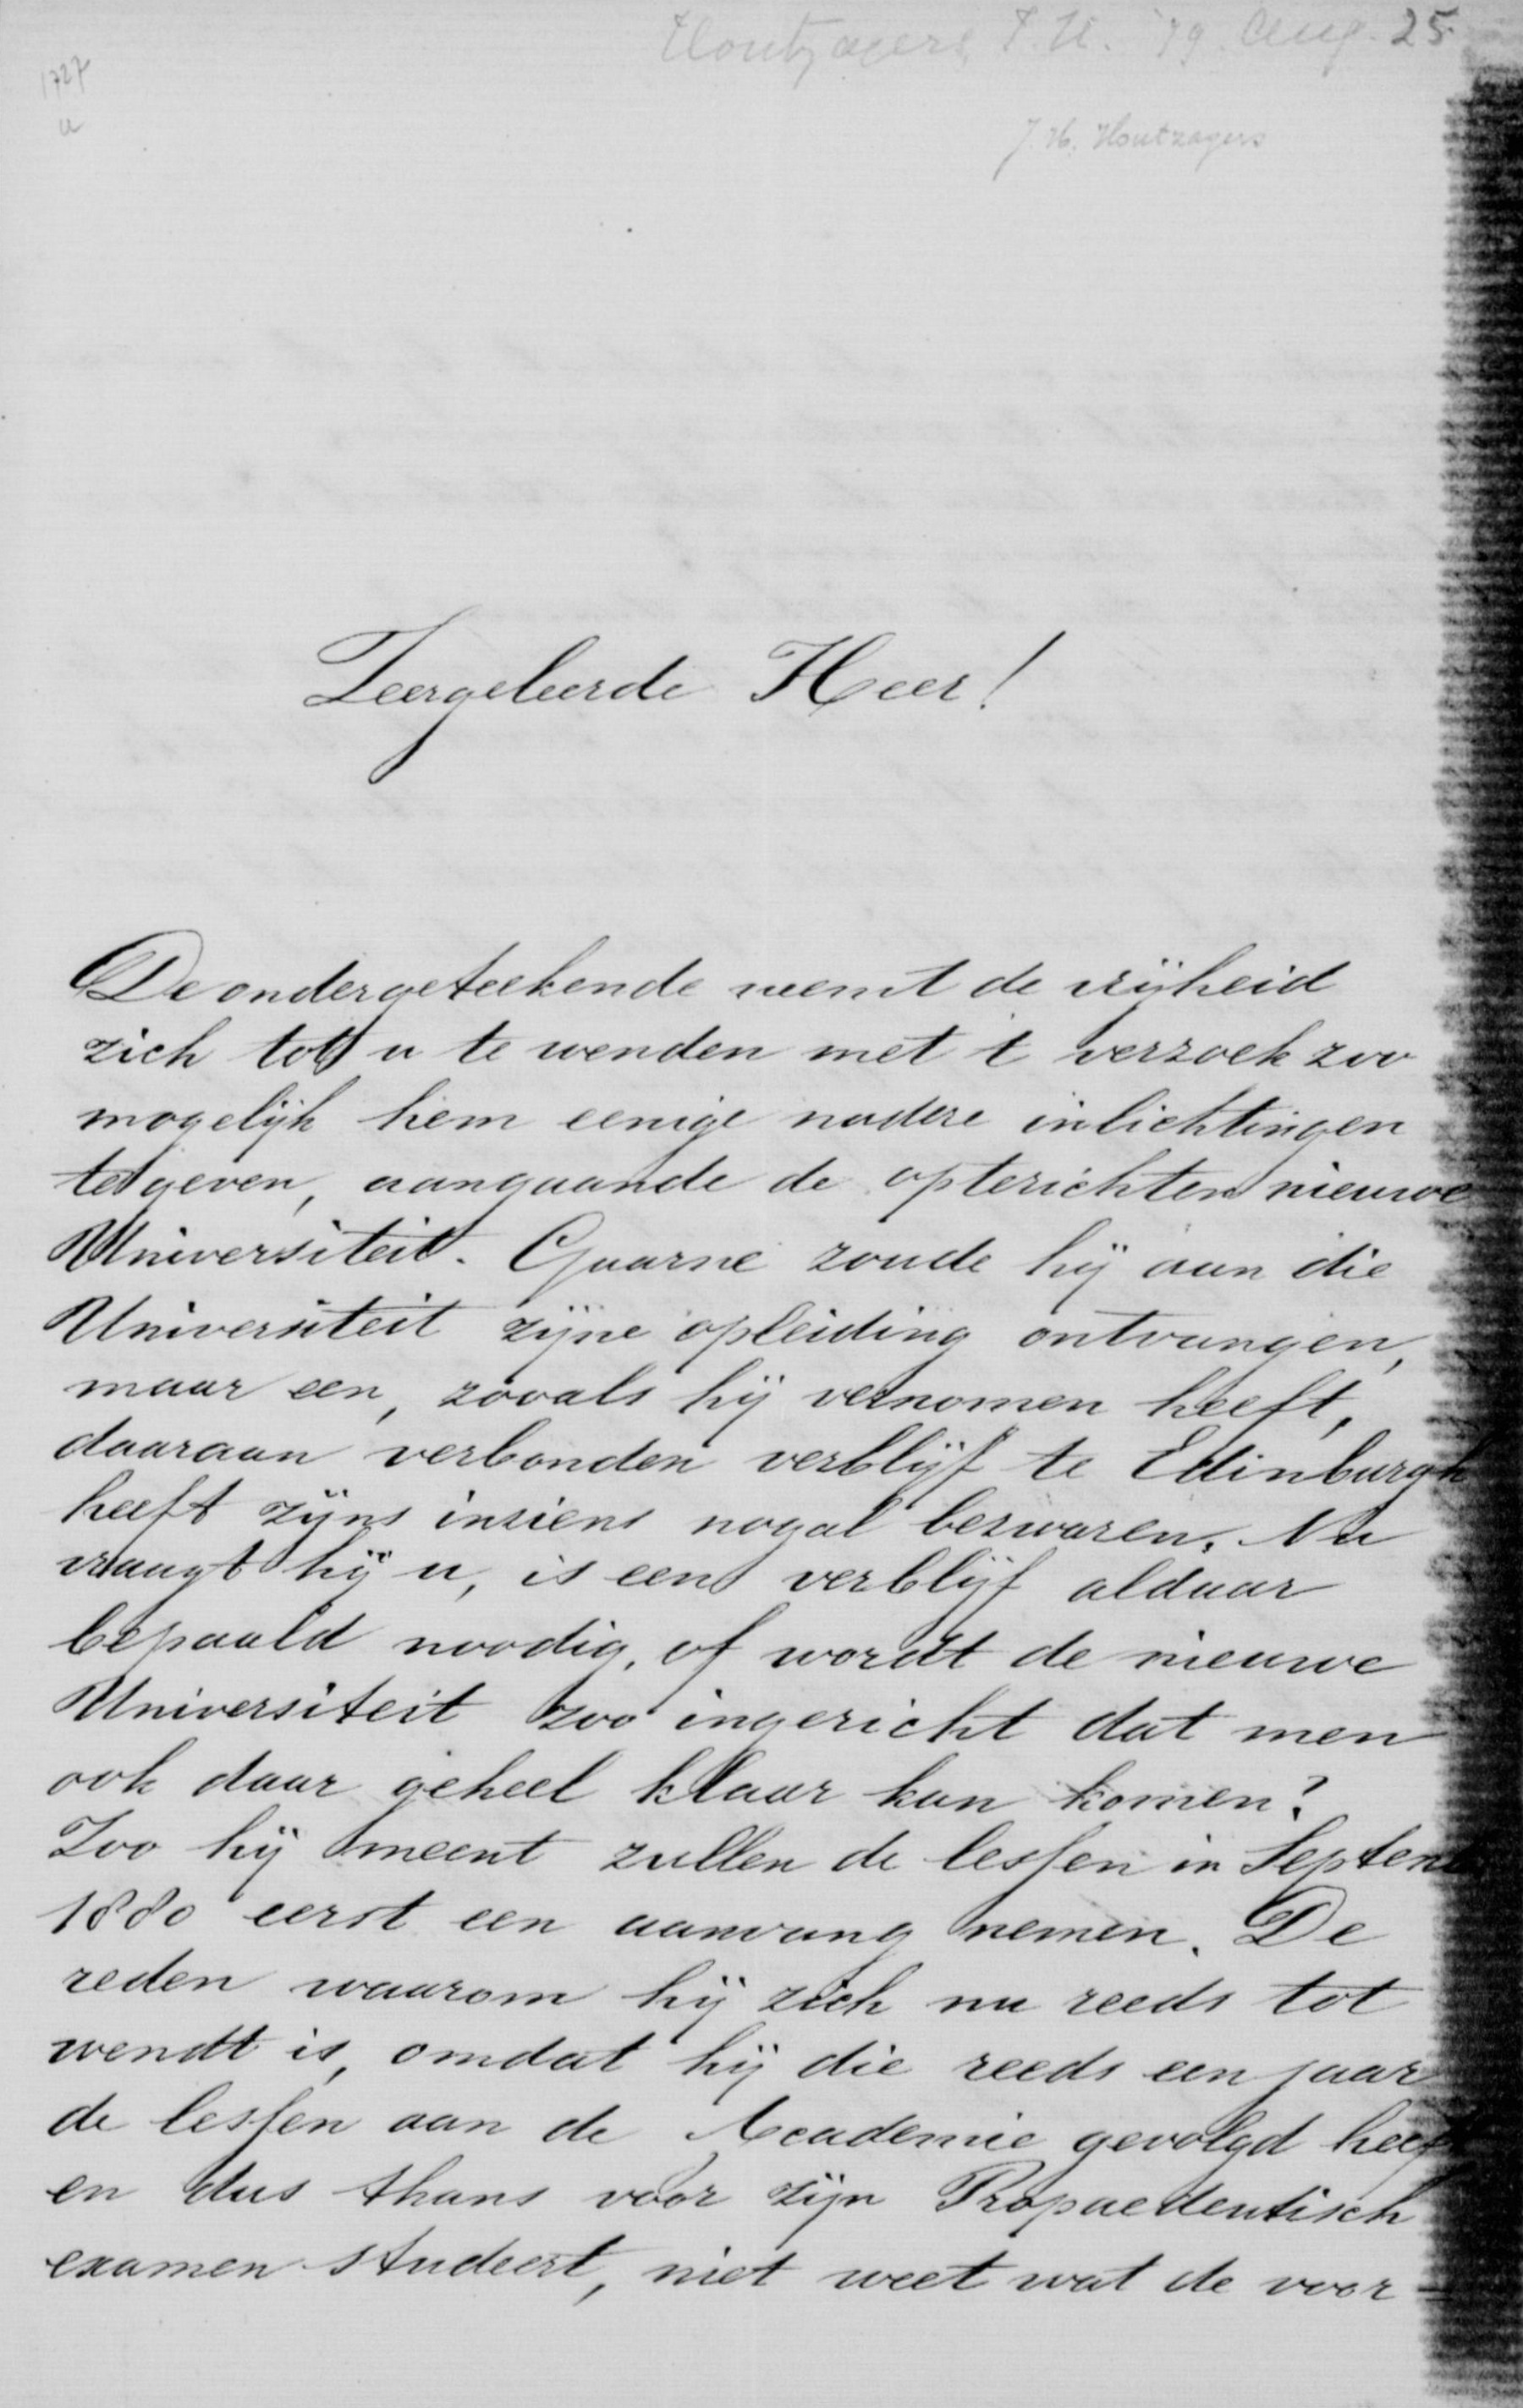 Houtzagers J.H. '79. Aug. 25.
1727
a
J. H. Houtzagers
Zeergeleerde Heer!
De ondergeteekende neemt de vrijheid
zich tot u te wenden met 't verzoek zoo
mogelijk hem eenige nadere inlichtingen
te geven, aangaande de opterichten nieuwe
Universiteit. Gaarne zoude hij aan die
Universiteit zijne opleiding ontvangen,
maar een, zooals hij vernomen heeft,
daaraan verbonden verblijf te Edinburgh
heeft zijns inziens nogal bezwaren. Nu
vraagt hij u, is een verblijf aldaar
bepaald noodig, of wordt de nieuwe
Universiteit zoo ingericht dat men
ook daar geheel klaar kan komen?
Zoo hij meent zullen de lessen in Septemb
1880 eerst een aanvang nemen. De
reden waarom hij zich nu reeds tot
wendt is, omdat hij die reeds een jaar
de lessen aan de Academie gevolgd heeft
en dus thans voor zijn Propaedeutisch
examen studeert, niet weet wat de voor-